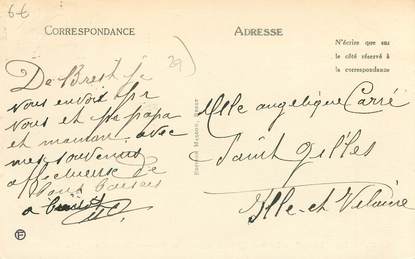 6 €
CORRESPONDANCE
ADRESSE
N'écrire que sur
le côté réservé à
la correspondance
29
De Brest je
vous envois pr
vous et pr papa
et maman avec
mes souvenirs
affectueuse de
bons baisers
a
Mlle angelique Carré
Saint gilles
Ille-et-Vilaine